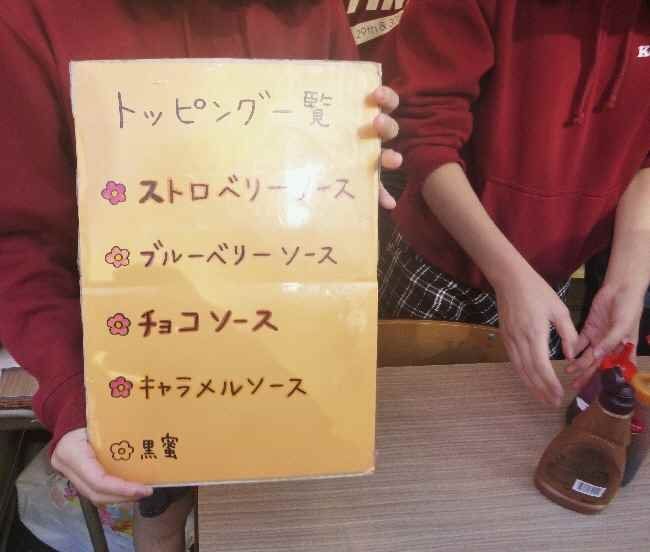 トッピング一覧
ストロベリーソース
ブルーベリーソース
チョコソース
キャラメルソース
黒蜜